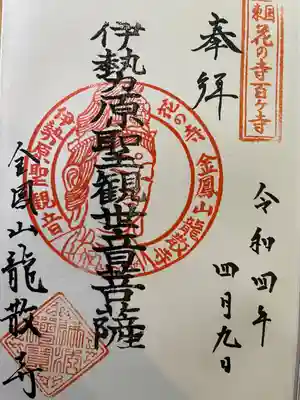 東国
花の寺百ヶ寺
奉拝
令和四年
四月九日
伊勢原聖観世音菩薩
花の寺
金鳳山龍散寺
伊勢原聖観音
金鳳山龍散寺